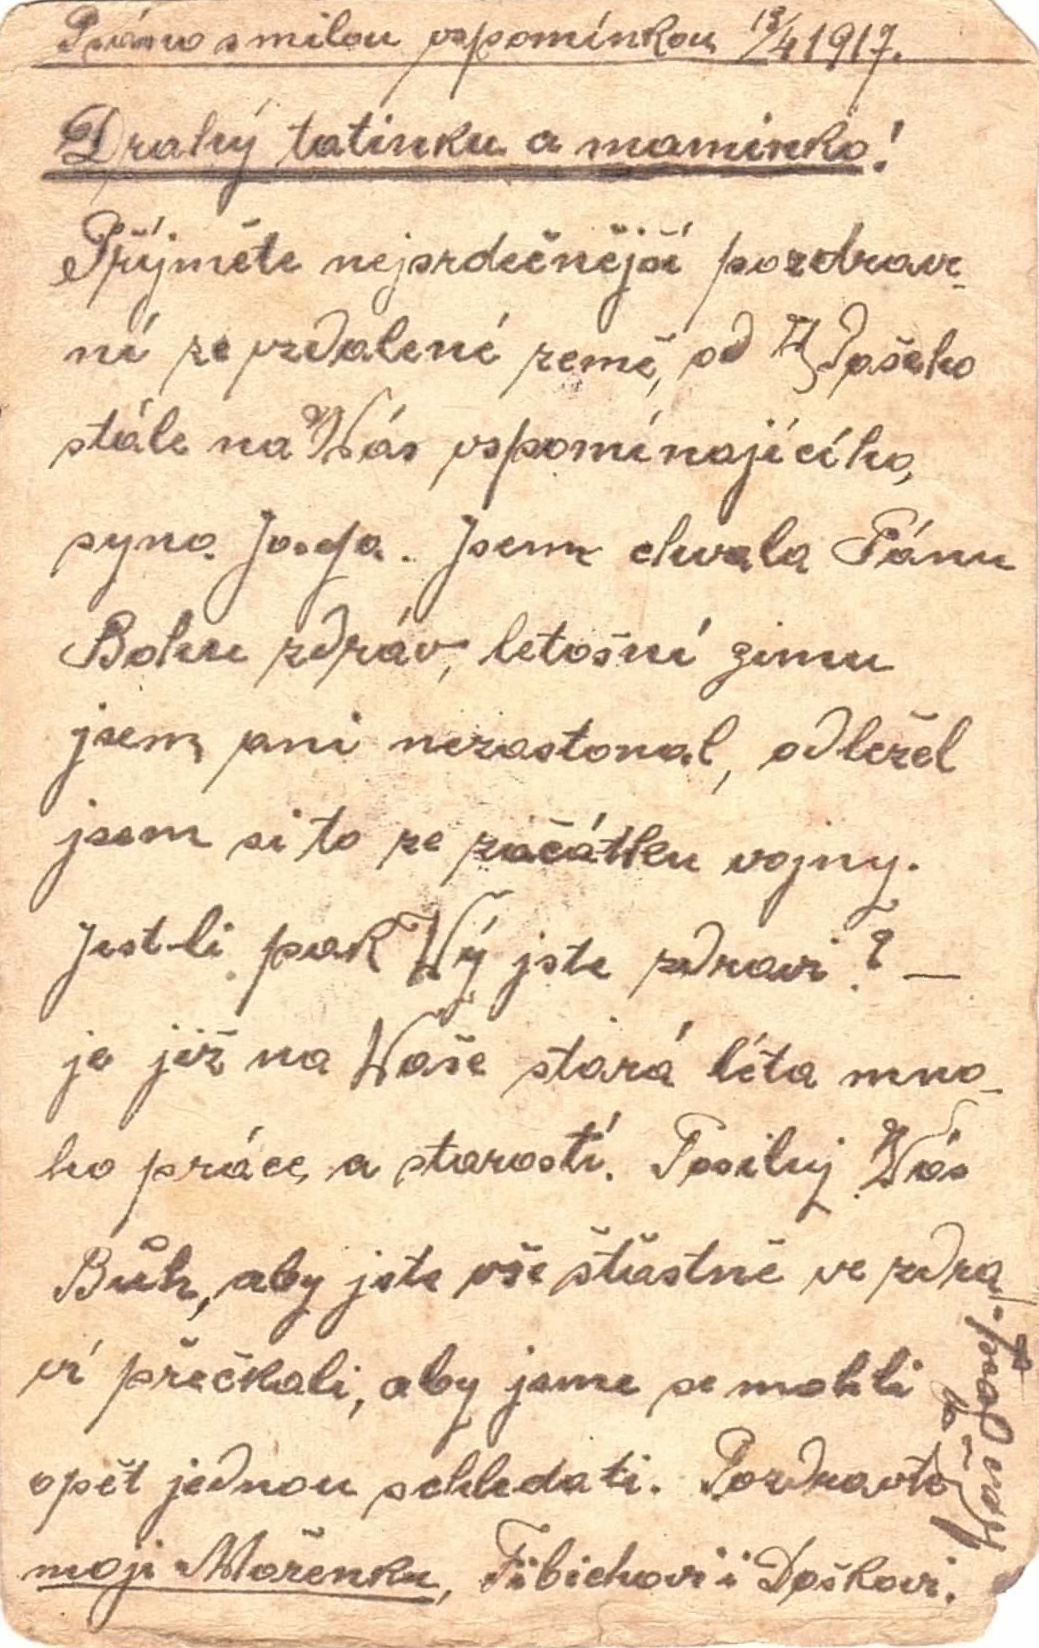 Psáno s milou vzpomínkou 18/4 1917.
Drahý tatinku a maminko!
Přijměte nejsrdečnější pozdrav-
ní ze vzdalené země, od Vašeho
stále na Vás vspomínajícího,
syna Josefa. Jsem chvala Pánu
Bohu zdráv, letošní zimu
jsem ani nezastonal, odležel
jsem si to ze začátku vojny.
Jest-li pak Vý jste zdravi? —
je již na Vaše stará léta mno-
ho práce a starostí. Posiluj Vás
Bůh, aby jste vše štiastně ve zdra-
ví přečkali, aby jsme se mohli
opět jednou schledati. Pozdravte
moji Mařenku, Fibichovi i Doškovi.
Váš
Josef